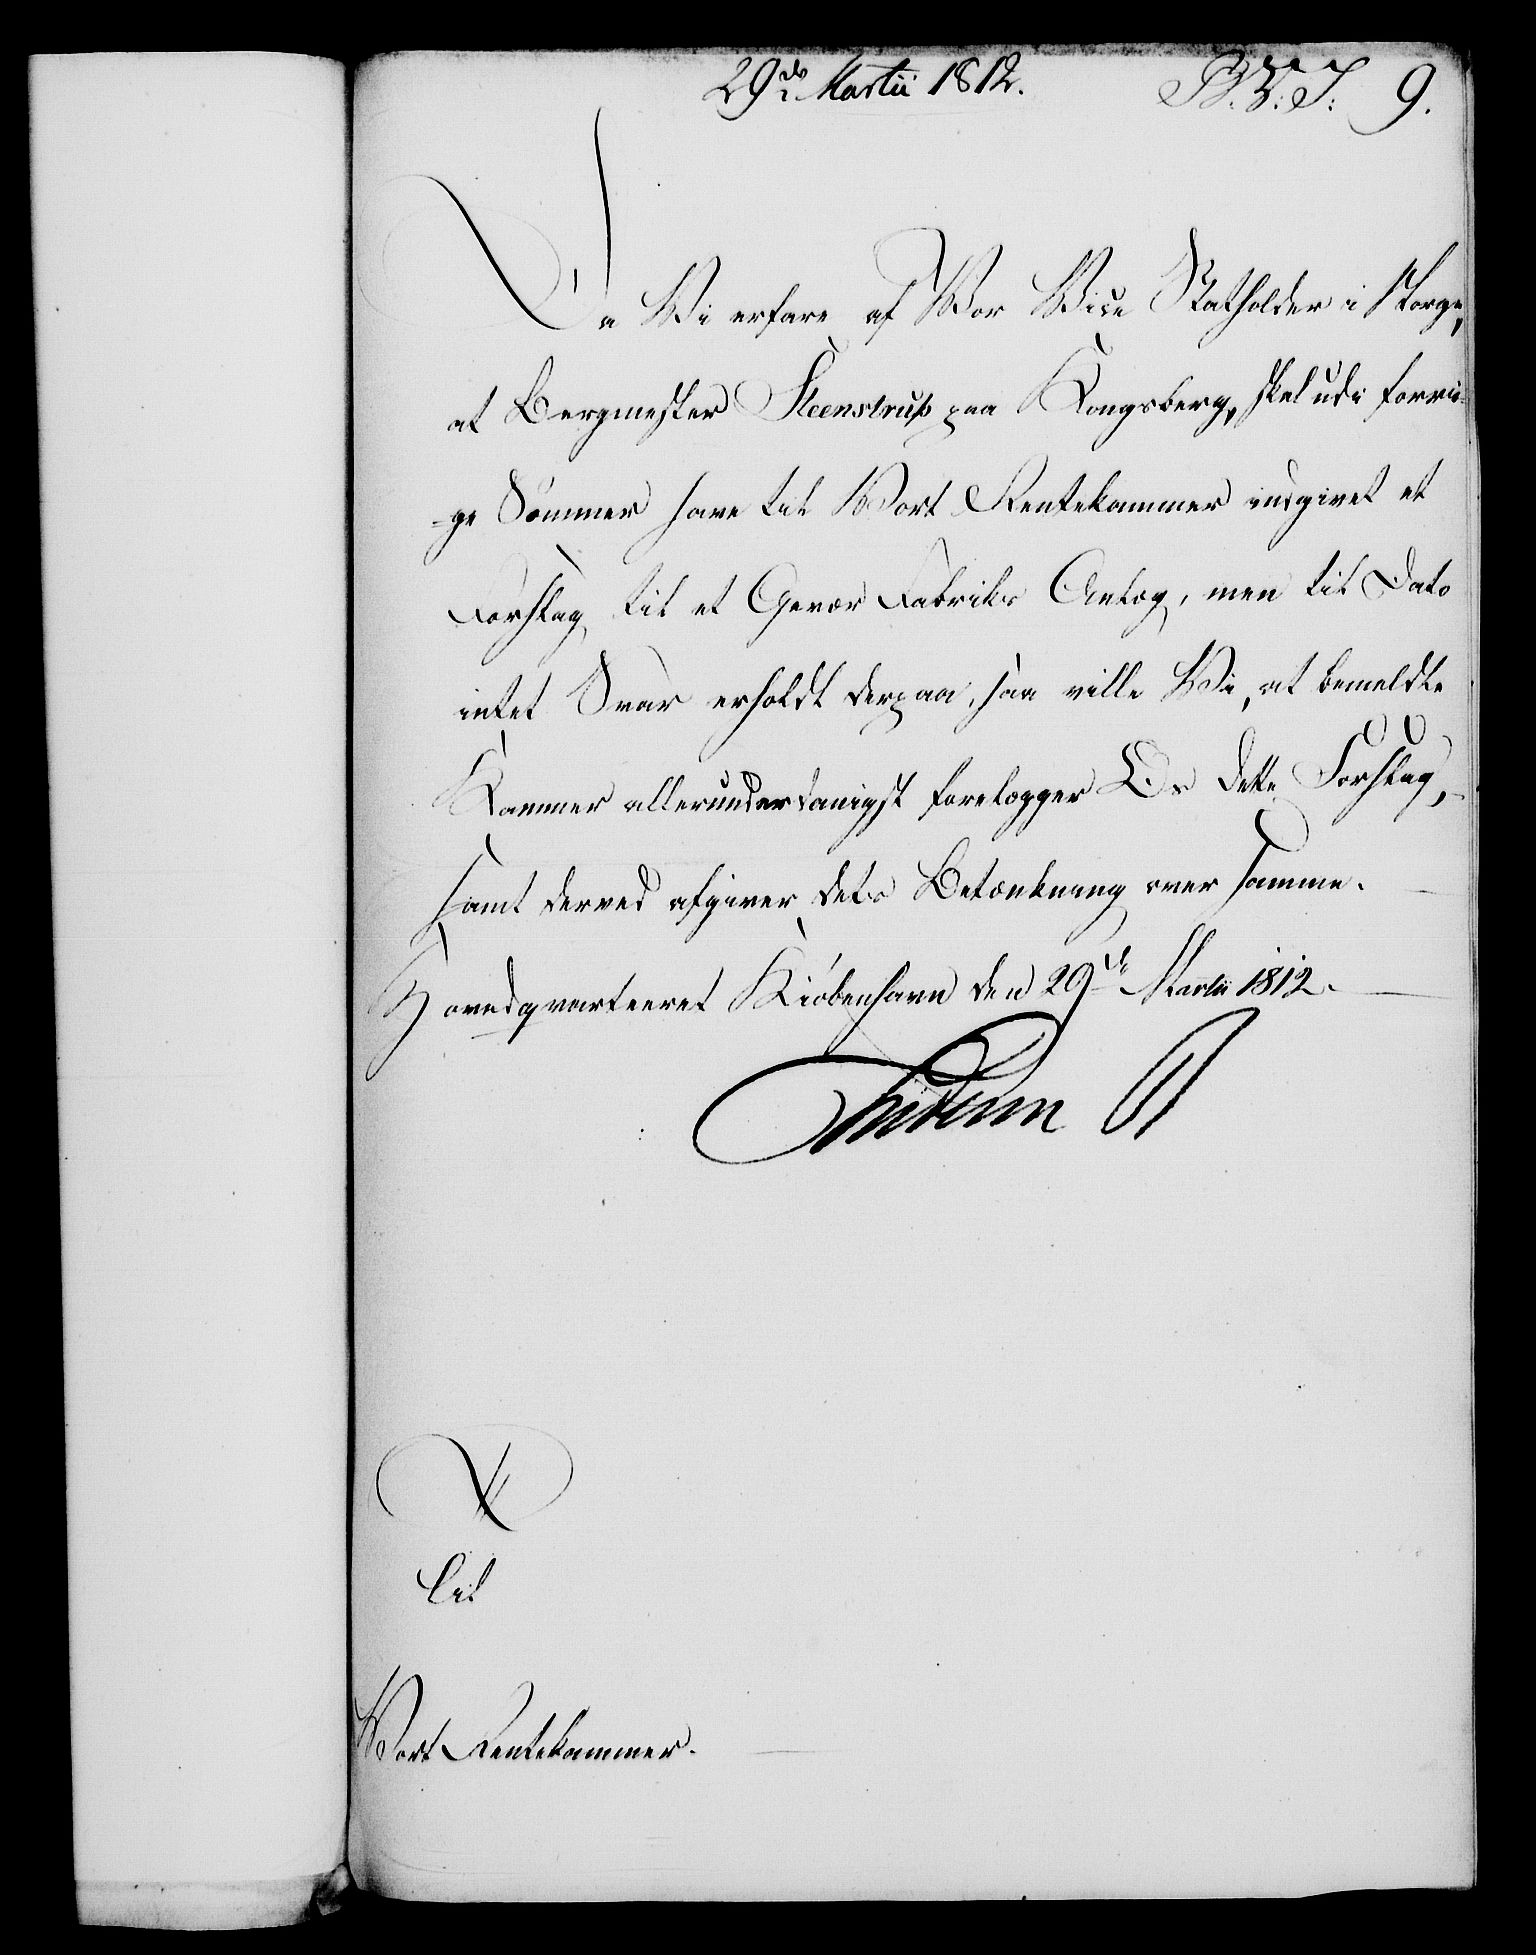 29de Martii 1812.
9.
Da Vi erfare af Vor Vice Statholder i Norge,
at Bergmester Steenstrup paa Kongsberg, skal udi forri-
ge Sommer have til Vort Rentekammer indgivet et
Forslag til et Gevær Fabriks Anlæg, men til Dato
intet Svar erholdt derpaa, saa ville Vi, at bemeldte
Kammer allerunderdanigst forelægger Os dette Forslag,
samt derved afgiver dets Betænkning over samme.
Hovedqvarteeret Kiøbenhavn den 29de Martii 1812.
Friderich R
Til
Vort Rentekammer.